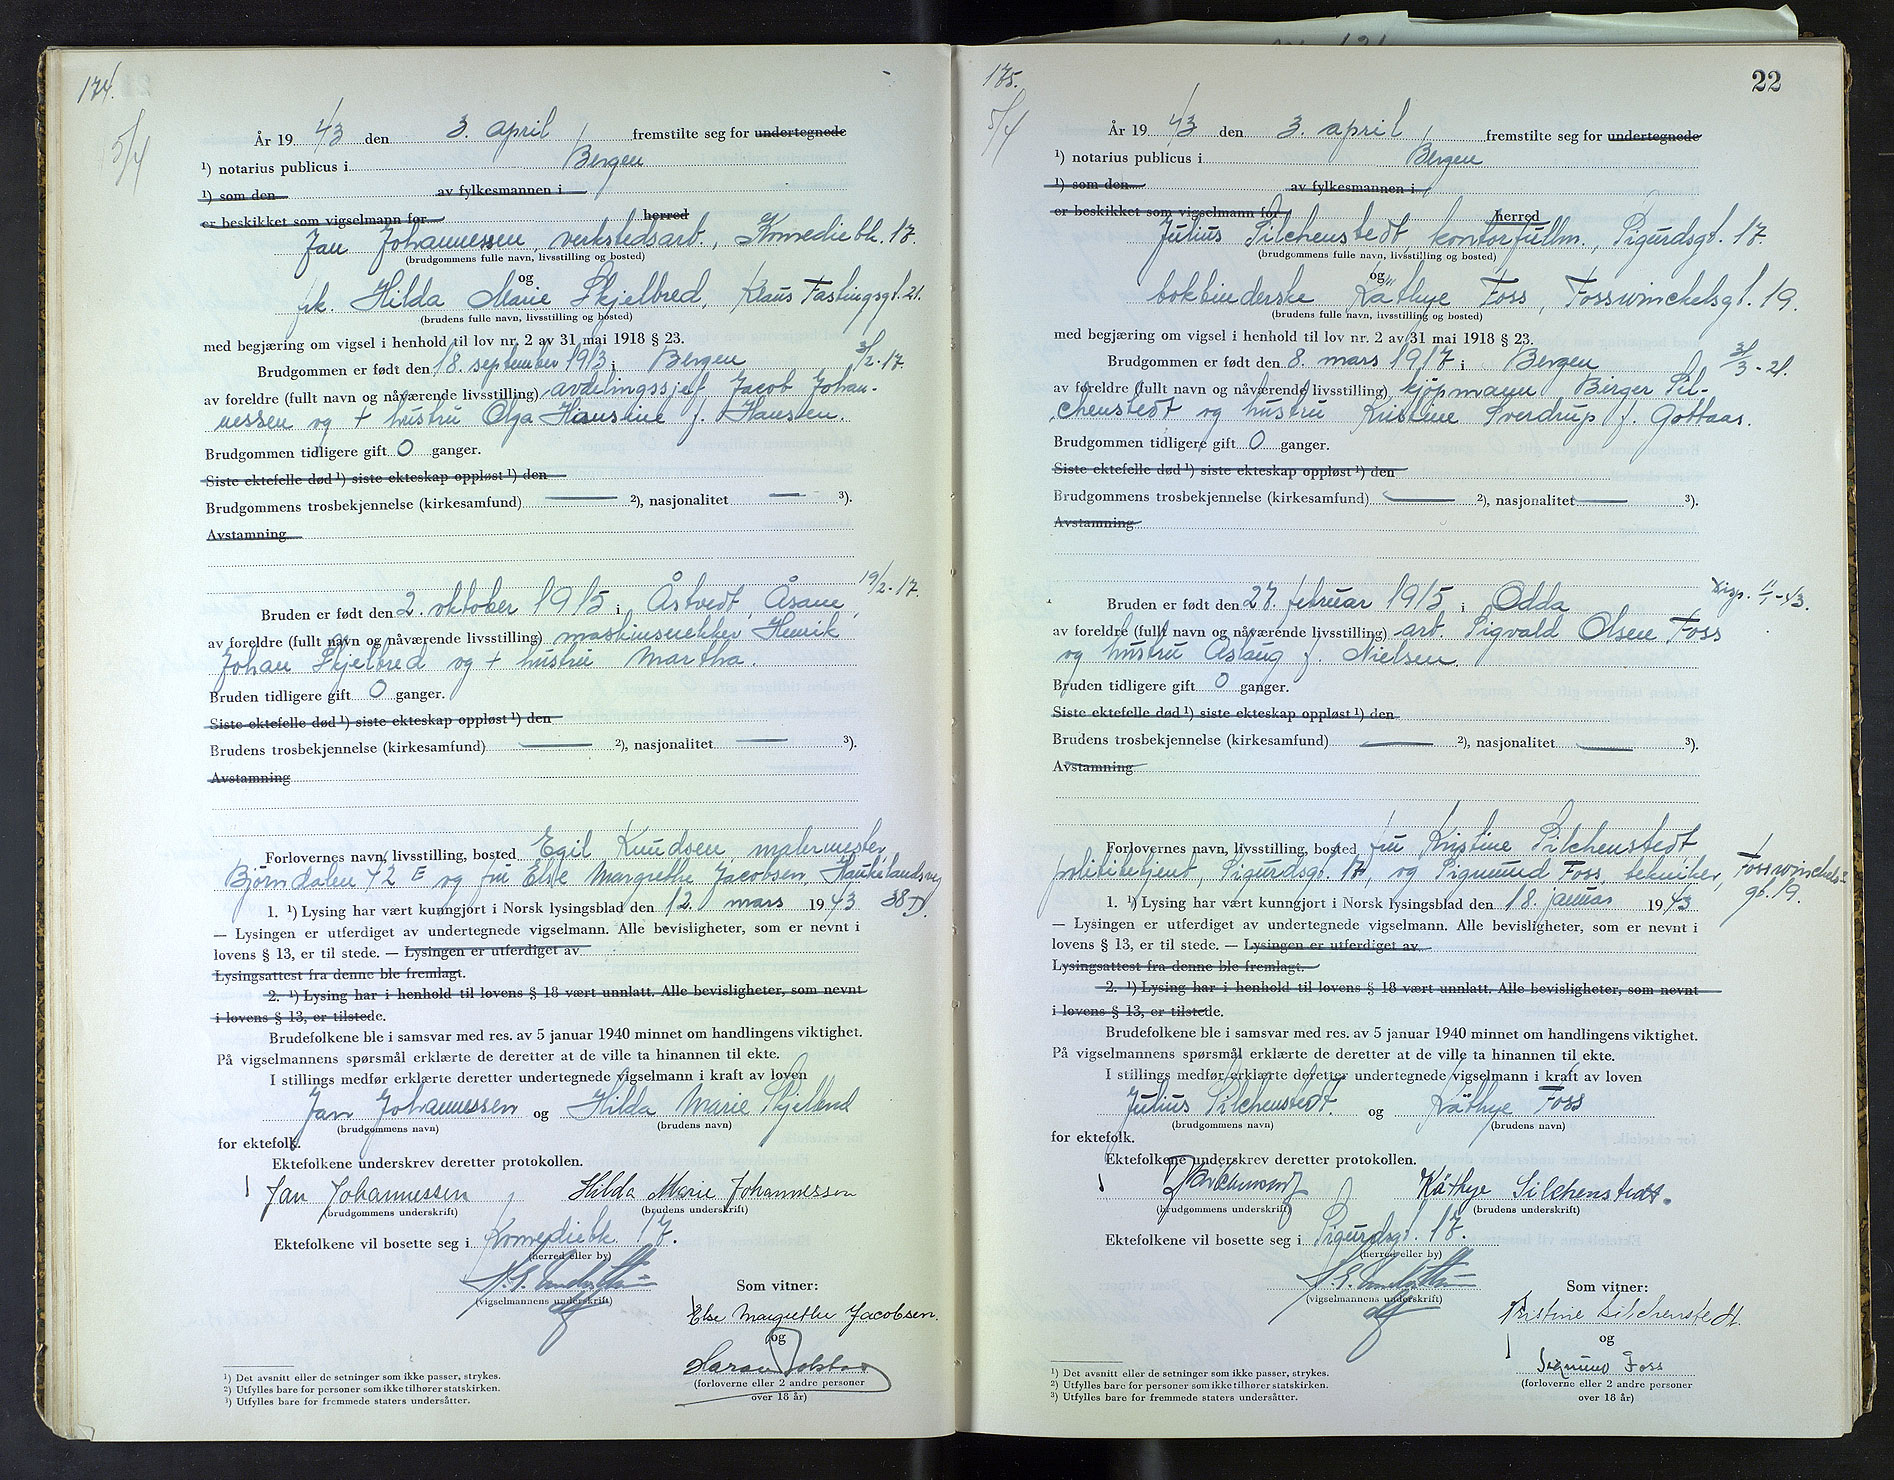 174.
5/4
År 19 43 den 3. april fremstilte seg for undertegnede
¹) notarius publicus i Bergen
¹) som den av fylkesmannen i
er beskikket som vigselmann for herred
Jan Johannessen, verkstedsarb., Komediebk. 17.
(brudgommens fulle navn, livsstilling og bosted)
og
frk. Hilda Marie Skjelbred, Klaus Fastingsgt. 21.
(brudens fulle navn, livsstilling og bosted)
med begjæring om vigsel i henhold til lov nr. 2 av 31 mai 1918 § 23.
Brudgommen er født den 18. september 1913 i Bergen 3/2-17.
av foreldre (fullt navn og nåværende livsstilling) avdelingssjef Jacob Johan-
nessen og + hustru Olga Hansine f. Hansen.
Brudgommen tidligere gift 0 ganger.
Siste ektefelle død ¹) siste ekteskap oppløst ¹) den
Brudgommens trosbekjennelse (kirkesamfund) — ²), nasjonalitet — ³).
Avstamning
19/2-17.
Bruden er født den 2. oktober 1915 i Åstvedt, Åsane,
av foreldre (fullt navn og nåværende livsstilling) maskinsnekker Henrik
Johan Skjelbred og + hustru Martha.
Bruden tidligere gift 0 ganger.
Siste ektefelle død ¹) siste ekteskap oppløst ¹) den
Brudens trosbekjennelse (kirkesamfund) — ²), nasjonalitet — ³).
Avstamning
Forlovernes navn, livsstilling, bosted Egil Knudsen, malermester,
Bjørndalen 42 E og fru Else Margrethe Jacobsen, Haukelandsvei
1. ¹) Lysing har vært kunngjort i Norsk lysingsblad den 12. mars 1943 38 D.
— Lysingen er utferdiget av undertegnede vigselmann. Alle bevisligheter, som er nevnt i
lovens § 13, er til stede. — Lysingen er utferdiget av
Lysingsattest fra denne ble fremlagt.
2. ¹) Lysing har i henhold til lovens § 18 vært unnlatt. Alle bevisligheter, som nevnt
i lovens § 13, er tilstede.
Brudefolkene ble i samsvar med res. av 5 januar 1940 minnet om handlingens viktighet.
På vigselmannens spørsmål erklærte de deretter at de ville ta hinannen til ekte.
I stillings medfør erklærte deretter undertegnede vigselmann i kraft av loven
Jan Johannessen og Hilda Marie Skjelbred
(brudgommens navn) (brudens navn)
for ektefolk.
Ektefolkene underskrev deretter protokollen.
Jan Johannessen, Hilda Marie Johannessen
(brudgommens underskrift) (brudens underskrift)
Ektefolkene vil bosette seg i Komediebk. 17.
(herred eller by)
Som vitner:
(vigselmannens underskrift)
Else Margrethe Jacobsen.
og
(forloverne eller 2 andre personer
over 18 år)
¹) Det avsnitt eller de setninger som ikke passer, strykes.
²) Utfylles bare for personer som ikke tilhører statskirken.
³) Utfylles bare for fremmede staters undersåtter.
175.
22
5/4
År 19 43 den 3. april, fremstilte seg for undertegnede
¹) notarius publicus i Bergen
¹) som den av fylkesmannen i
er beskikket som vigselmann for herred
Julius Silchenstedt, kontorfullm., Sigurdsgt. 17.
(brudgommens fulle navn, livsstilling og bosted)
og
bokbinderske Käthye Foss, Fosswinckelsgt. 19.
(brudens fulle navn, livsstilling og bosted)
med begjæring om vigsel i henhold til lov nr. 2 av 31 mai 1918 § 23.
Brudgommen er født den 8. mars 1917 i Bergen 31/3-21.
av foreldre (fullt navn og nåværende livsstilling) kjøpmann Birger Sil-
chenstedt og hustru Kristine Sverdrup f. Gottaas.
Brudgommen tidligere gift 0 ganger.
Siste ektefelle død ¹) siste ekteskap oppløst ¹) den
Brudgommens trosbekjennelse (kirkesamfund) — ²), nasjonalitet — ³).
Avstamning
Bruden er født den 27. februar 1915 i Odda
av foreldre (fullt navn og nåværende livsstilling) arb. Sigvald Olsen Foss
og hustru Aslaug f. Nielsen.
Bruden tidligere gift 0 ganger.
Siste ektefelle død ¹) siste ekteskap oppløst ¹) den
Brudens trosbekjennelse (kirkesamfund) — ²), nasjonalitet — ³).
Avstamning
Forlovernes navn, livsstilling, bosted fru Kristine Silchenstedt
politibetjent, Sigurdsgt. 17, og Sigmund Foss, tekniker, Fosswinckels-
gt. 19.
1. ¹) Lysing har vært kunngjort i Norsk lysingsblad den 18. januar 1943
— Lysingen er utferdiget av undertegnede vigselmann. Alle bevisligheter, som er nevnt i
lovens § 13, er til stede. — Lysingen er utferdiget av
Lysingsattest fra denne ble fremlagt.
2. ¹) Lysing har i henhold til lovens § 18 vært unnlatt. Alle bevisligheter, som nevnt
i lovens § 13, er tilstede.
Brudefolkene ble i samsvar med res. av 5 januar 1940 minnet om handlingens viktighet.
På vigselmannens spørsmål erklærte de deretter at de ville ta hinannen til ekte.
I stillings medfør erklærte deretter undertegnede vigselmann i kraft av loven
Julius Silchenstedt. og Käthye Foss
(brudgommens navn) (brudens navn)
for ektefolk.
Ektefolkene underskrev deretter protokollen.
Käthye Silchenstedt.
(brudgommens underskrift) (brudens underskrift)
Ektefolkene vil bosette seg i Sigurdsgt. 17.
(herred eller by)
Som vitner:
(vigselmannens underskrift)
Kristine Silchenstedt.
og
Sigmund Foss
(forloverne eller 2 andre personer
over 18 år)
¹) Det avsnitt eller de setninger som ikke passer, strykes.
²) Utfylles bare for personer som ikke tilhører statskirken.
³) Utfylles bare for fremmede staters undersåtter.